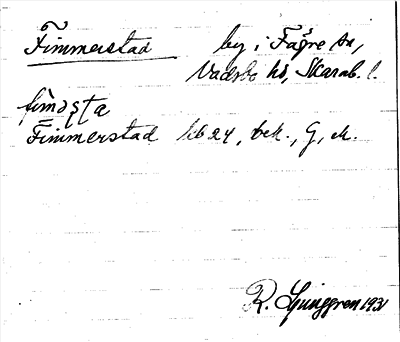 Fimmerstad by i Fägre sn,
Vadsbo hd, Skarab. l.
fìmǝṣta
Fimmerstad hb 24, bek., G, ek.
R. Ljunggren 1931